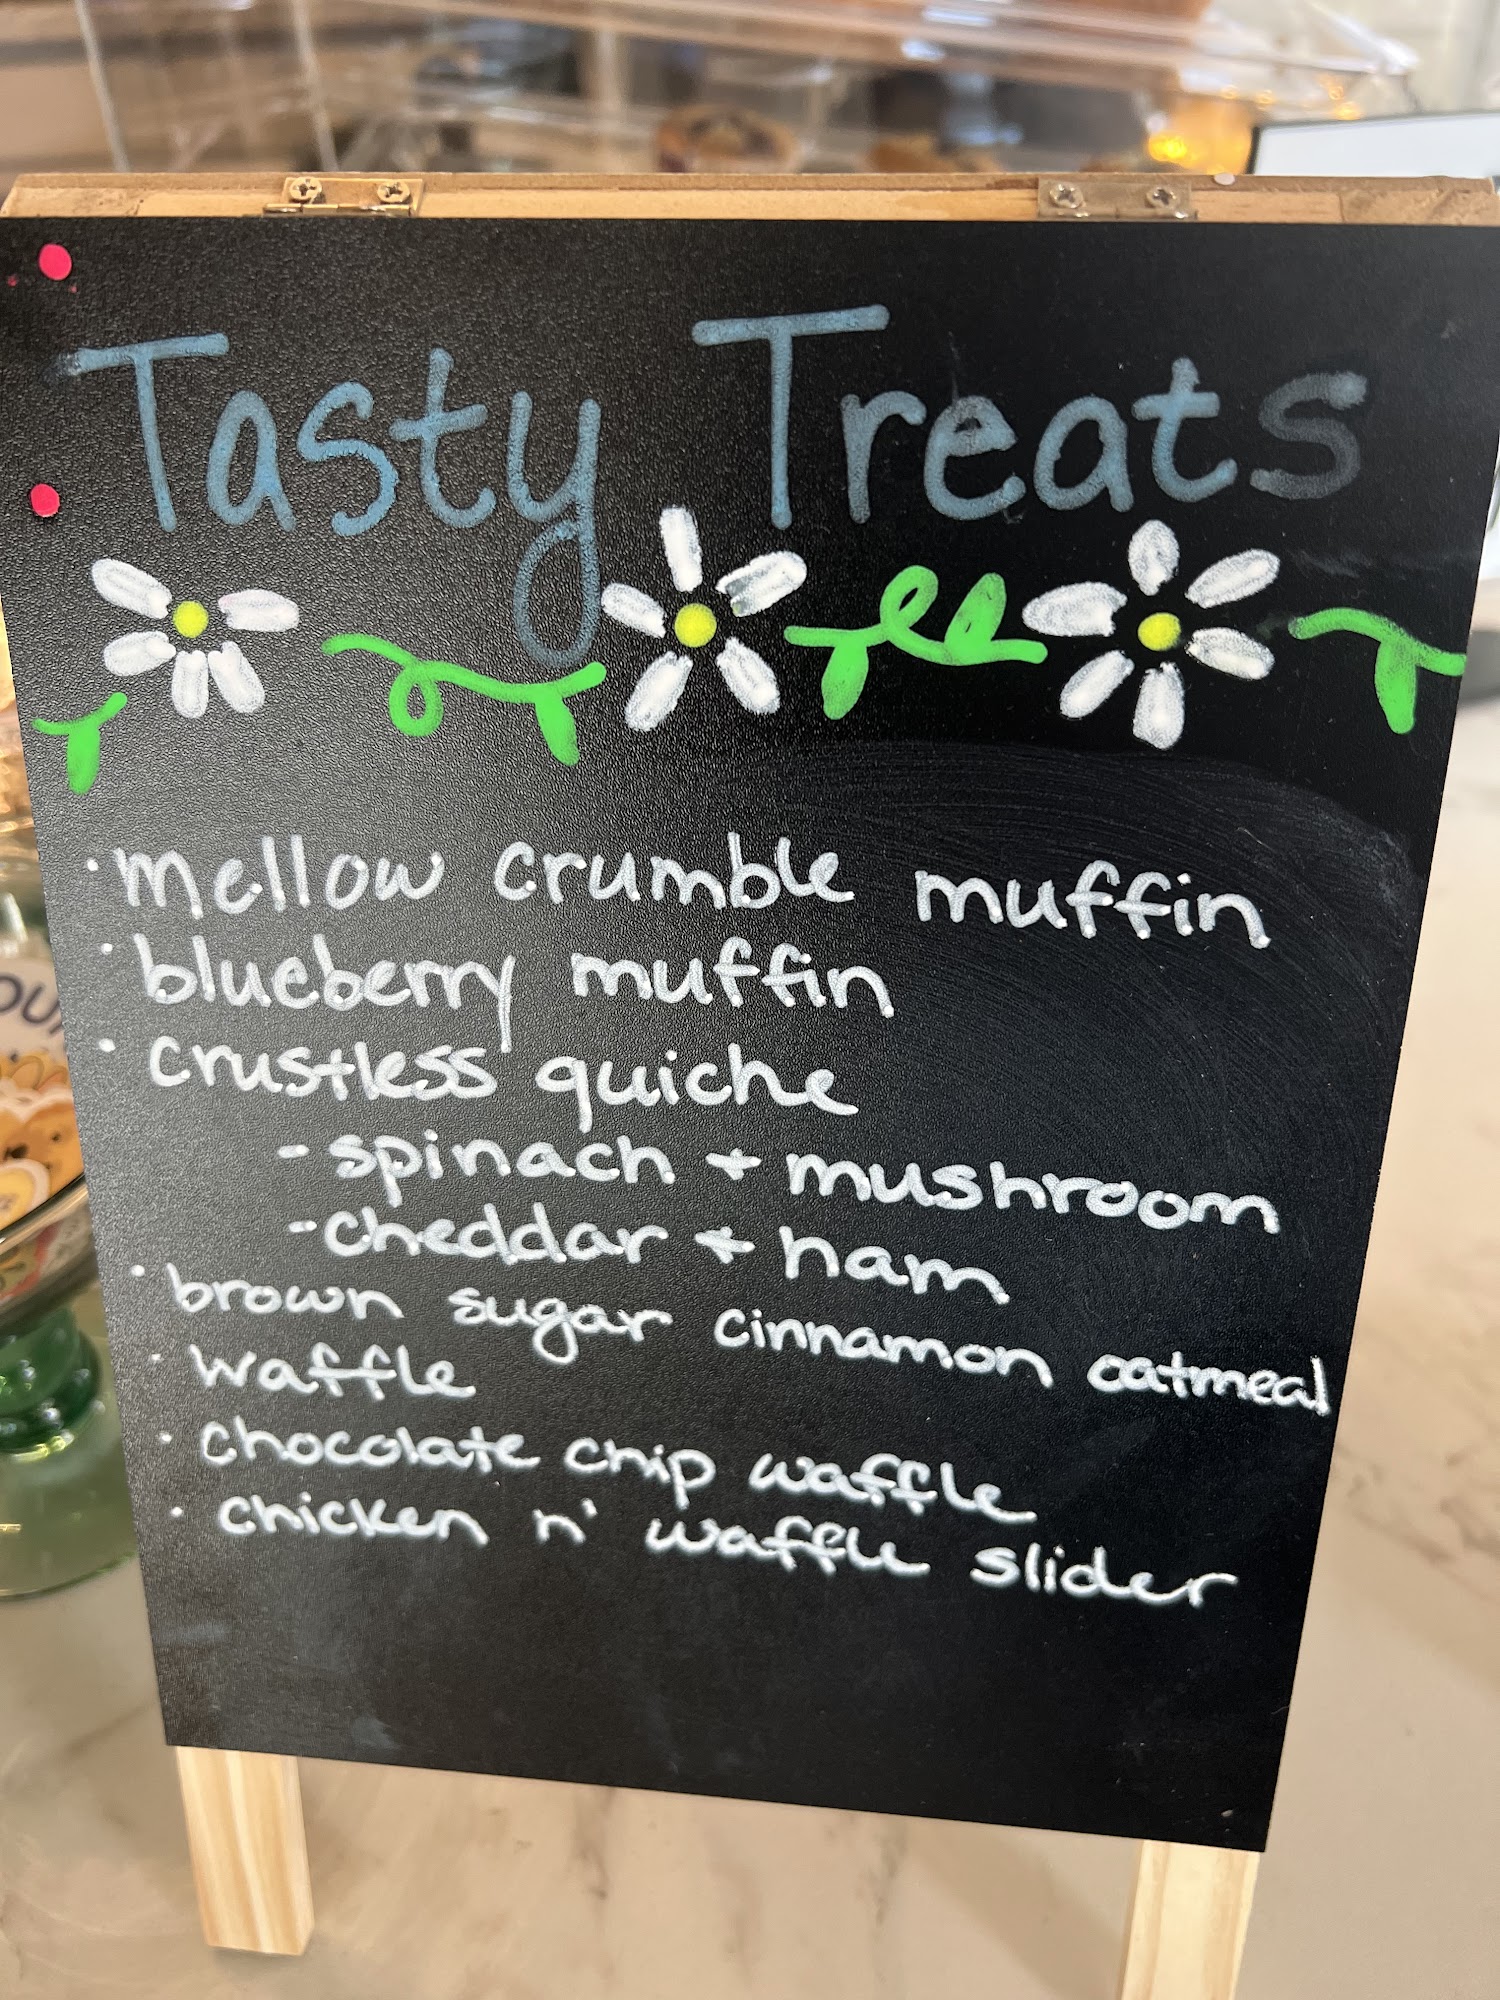 Tasty Treats
· mellow crumble muffin
· blueberry muffin
· crustless quiche
- spinach + mushroom
- cheddar + ham
· brown sugar cinnamon oatmeal
· waffle
· chocolate chip waffle
· chicken n' waffle slider